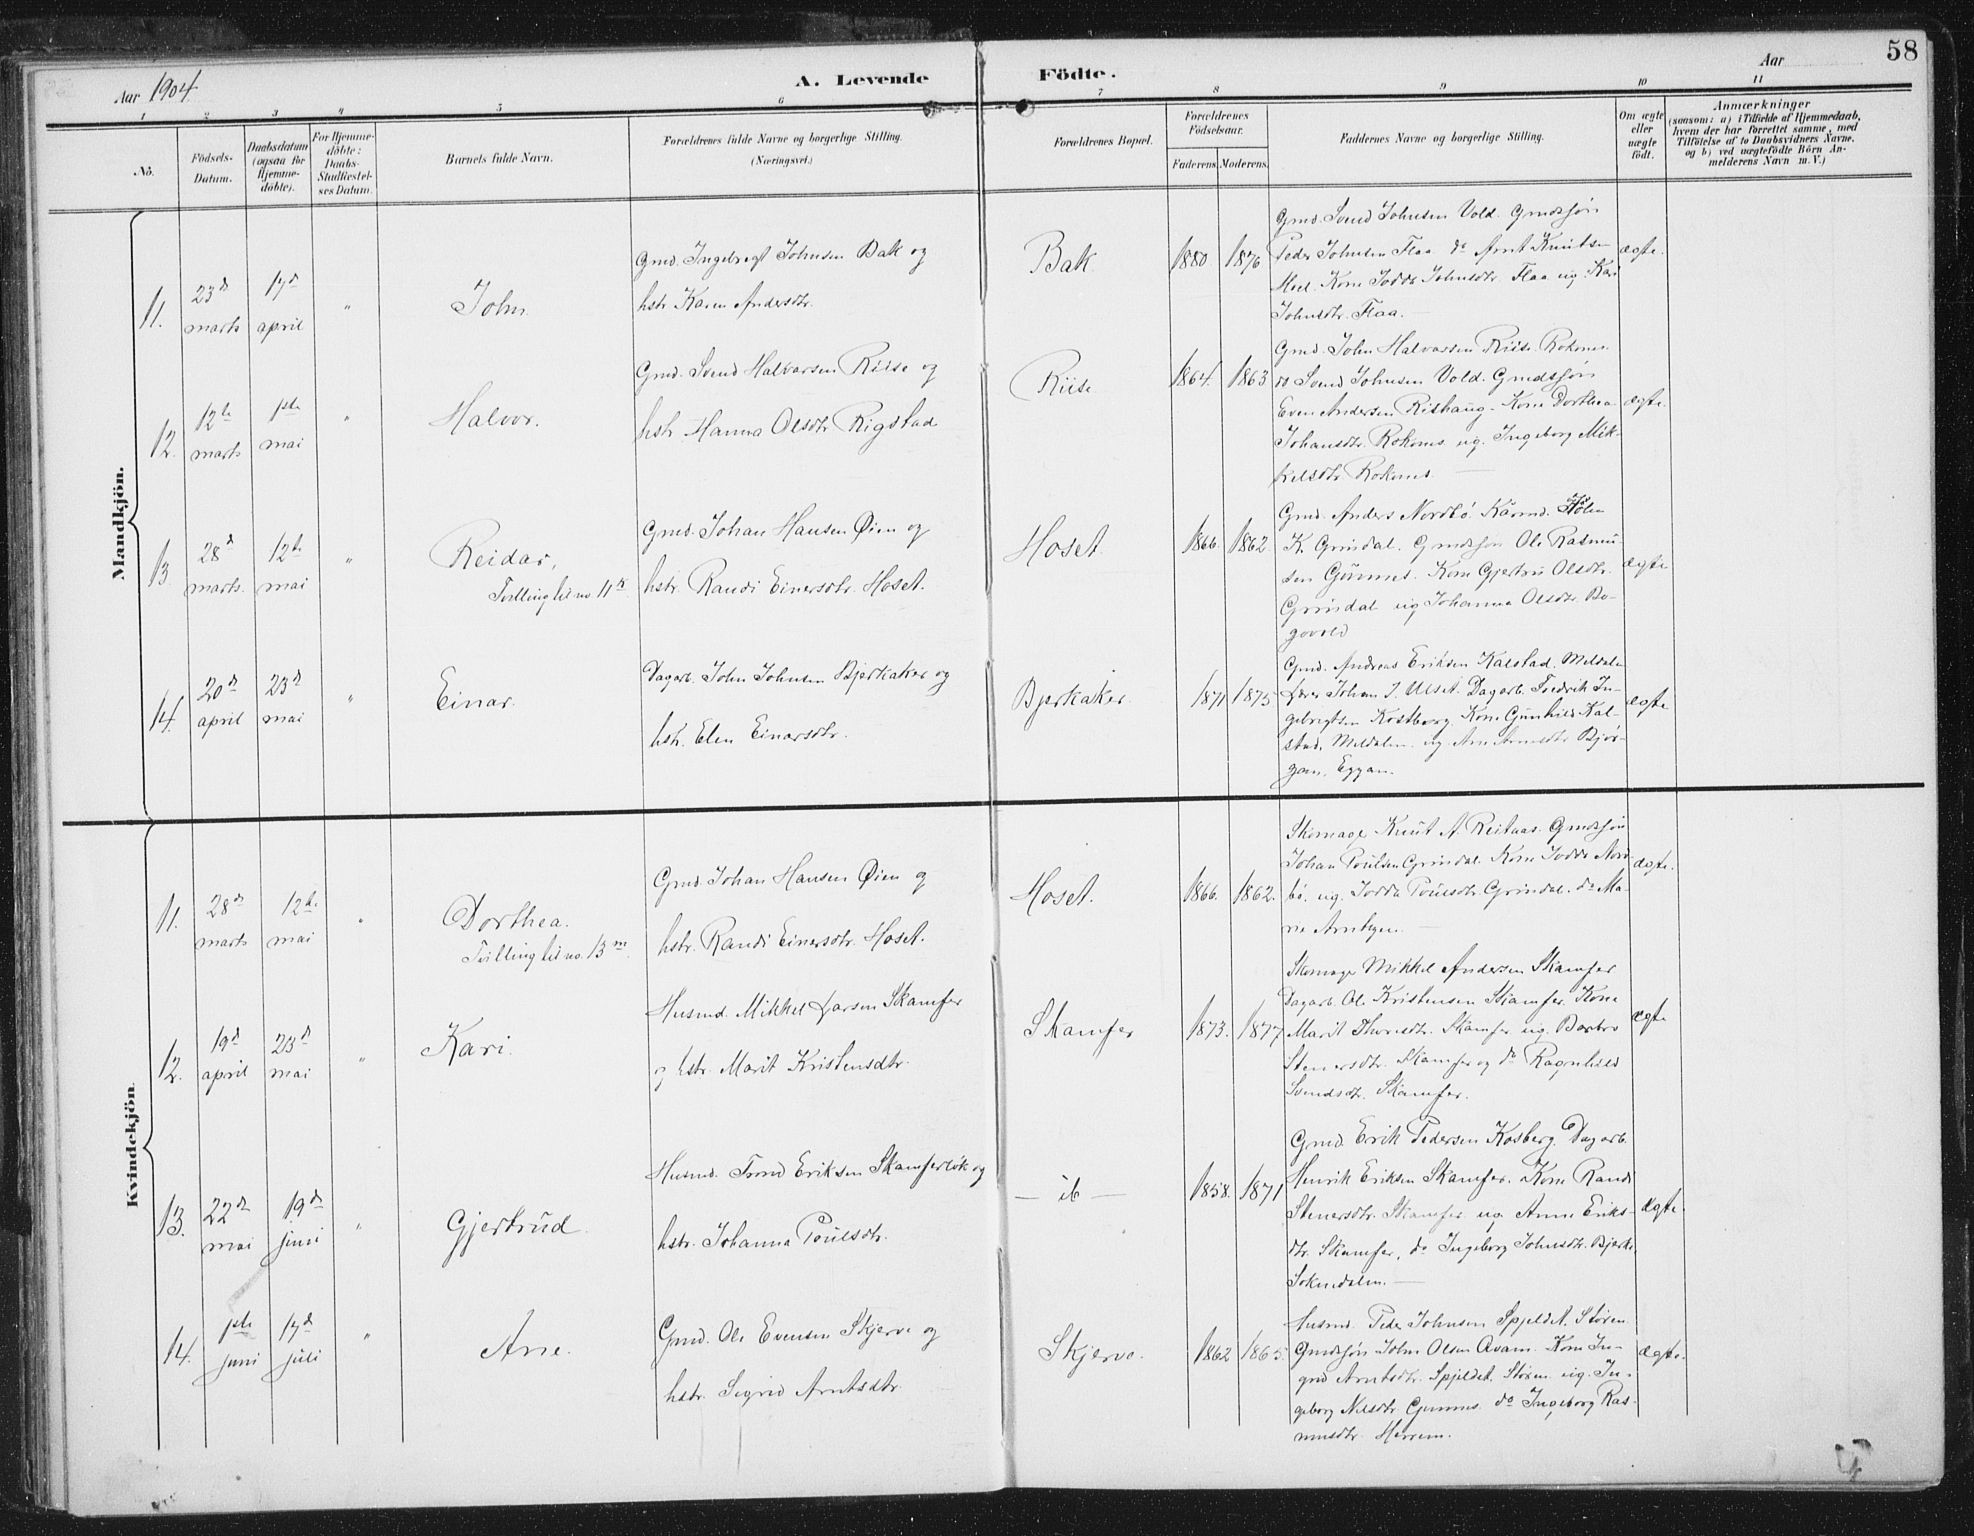 58
Aar 1904
A. Levende Födte.
Aar
1 2 3 4 5 6 7 8 9 10 11
No.
Födsels-Datum.
Daabsdatum (ogsaa for Hjemme-döbte).
For Hjemme-döbte: Daabs-Stadfæstel-ses Datum.
Barnets fulde Navn.
Forældrenes fulde Navne og borgerlige Stilling.
(Næringsvei.)
Forældrenes Bopæl.
Forældrenes Födselsaar.
Faderens. Moderens.
Faddernes Navne og borgerlige Stilling.
Om ægte eller uægte födt.
Anmærkninger
(saasom: a) i Tilfælde af Hjemmedaab,
hvem der har forrettet samme, med
Tilföielse af to Daabsvidners Navne,
og b) ved uægtefödte Börn An-
melderens Navn m. V.)
Mandkjön.
11. 23d marts
17d april
"
John
Gmd. Ingebrigt Johnsen Bak og
hstr. Karen Andersdtr.
Bak
1880. 1876
Gmd. Svend Johnsen Vold. Gmdssøn
Peder Johnsen Flaa do Arnt Knutsen
Kone Jodda Johnsdtr. Flaa ug. Kari
Johnsdtr. Flaa.
ægte.
12. 12te marts
1ste mai
"
Halvor.
Gmd. Svend Halvorsen Riise og
hstr. Hanna Olsdtr Rigstad
Riise
1864. 1863
Gmd. John Halvorsen Riise. Roknes
do Svend Johnsen Vold. Gmdssøn
Even Andersen Rishaug. Kone Dorthea
Johansdtr. Roknes ug. Ingeborg Mik-
kelsdtr. Roknes
ægte.
13. 28d marts.
12te mai
"
Reidar,
Tvilling til no. 11 k.
Gmd. Johan Hansen Øien og
hstr. Randi Einersdtr. Hoset.
Hoset
1866. 1862.
Gmd. Anders Nordbö Kaarmd.
K. Grindal. Gmdssøn Ole Rasmus-
sen Gynnes. Kone Gjertru Olsdtr.
Grindal ug Johanna Olsdtr. Bo-
govold
ægte
14. 20d april
23d mai
"
Einar.
Dagarb. John Johnsen Bjerkaker og
hstr. Elen Einarsdtr.
Bjerkaker.
1871 1875
Gmd. Andreas Eriksen Kalstad. Meldalen
Lærer Johan J. Ulset. Dagarb. Fredrik In-
gebrigtsen Kostberg. Kone Gunhild Kal-
stad, Meldalen. ug Ane Arnesdtr Bjør-
gan, Eggan.
ægte
Kvindekjön.
11. 28d marts
12te mai
"
Dorthea.
Tvilling til no. 13 m.
Gmd. Johan Hansen Øien og
hstr. Randi Einersdtr. Hoset.
Hoset.
1866. 1862.
Skomage Knut A. Reitaas. Gmdssøn
Johan Poulsen Grindal. Kone Jodda Nord-
bö. ug. Jodda Poulsdtr. Grindal. do Ma-
rie
ægte.
12. 19d april
23d mai
"
Kari.
Husmd. Mikkel Larsen Skamfer
og hstr. Marit Kristensdtr.
Skamfer
1873. 1877
Skomage Mikkel Andersen Skamfer
Dagarb. Ole Kristensen Skamfer. Kone
Marit Thoresdtr. Skamfer ug. Barbro
Stenersdtr. Skamfer og do Ragnhild
Svendsdtr. Skamfer.
ægte
13. 22d mai
19d juni
"
Gjertrud.
Husmd. Trond Eriksen Skamferløk og
hstr. Johanna Poulsdtr.
— ib —
1858. 1871
Gmd. Erik Pedersen Kosberg. Dagarb.
Henrik Eriksen Skamfer. Kone Randi
Stenersdtr. Skamfer ug. Anne Eriks-
dtr. Skamfer, do Ingeborg Johnsdtr. Bjerke
Soknedalen.
ægte.
14. 1ste juni
17d juli
"
Ane.
Gmd. Ole Evensen Skjerve og
hstr. Sigrid Arntsdtr.
Skjerve.
1862 1865.
Husmd. Peder Johnsen Spjeldet. Støren
Gmdssøn John Olsen Kone In-
grid Arntsdtr. Spjeldet. Støren ug. In-
geborg Nilsdtr. Gynnes. do Ingeborg Ras-
musdtr. Herrem.
ægte.